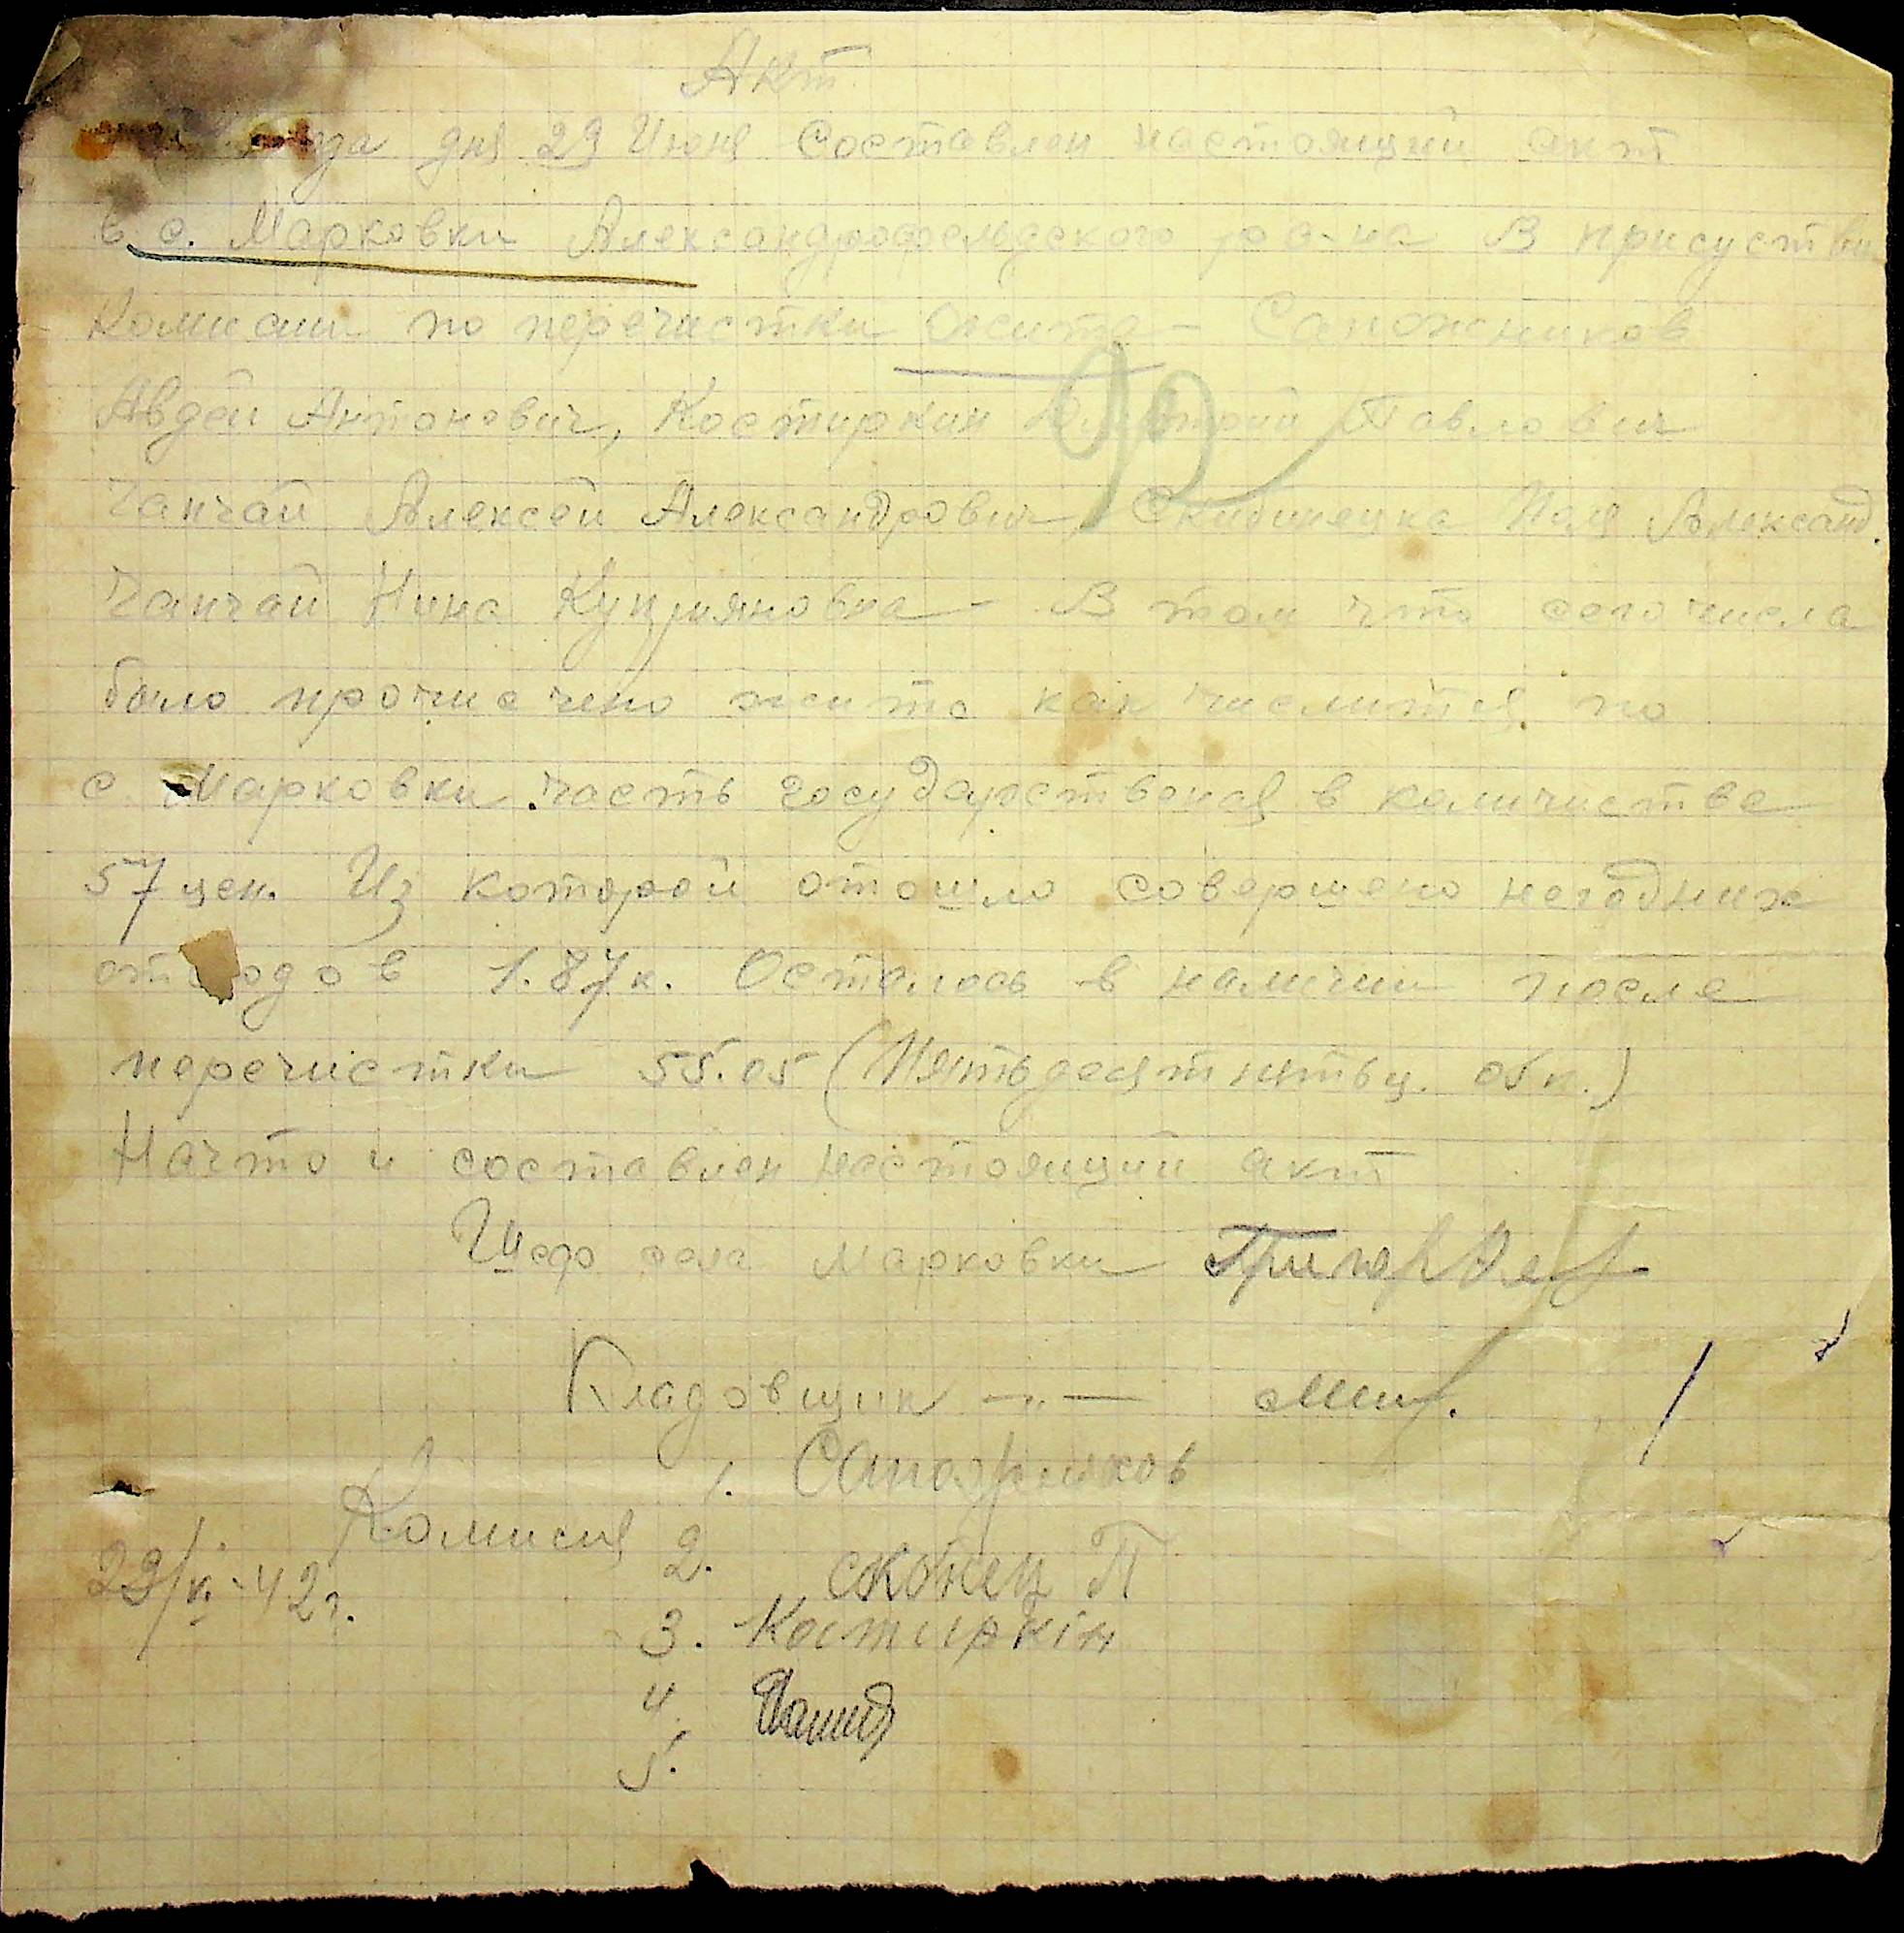 Акт
года дня 29 Июня Составлен настоящий акт
в с. Марковки Александрофельдского ра-на В присуствии
Комисии по перечистки Жита — Сапожников
Авдей Антонович, Костиркин Павлович
Чапчай Алексей Александрович, Поля Александ.
Чапчай Нина Куприяновна — В том что сего числа
было прочисчено жито как числится по
с. Марковки часть государственая в каличистве
57 цен. Из которой отошло совершено негодних
отходов 1.87 к. Осталось в наличии после
перечистки 55.05 (Пятьдесят пять ц. 05 к.)
Начто и составлен настоящий акт
Шеф села Марковки
Кладовщик —„—
Комисия 1. Сапожников
29/VI-42г. 2. П
3. Костиркін
4.
5.
92